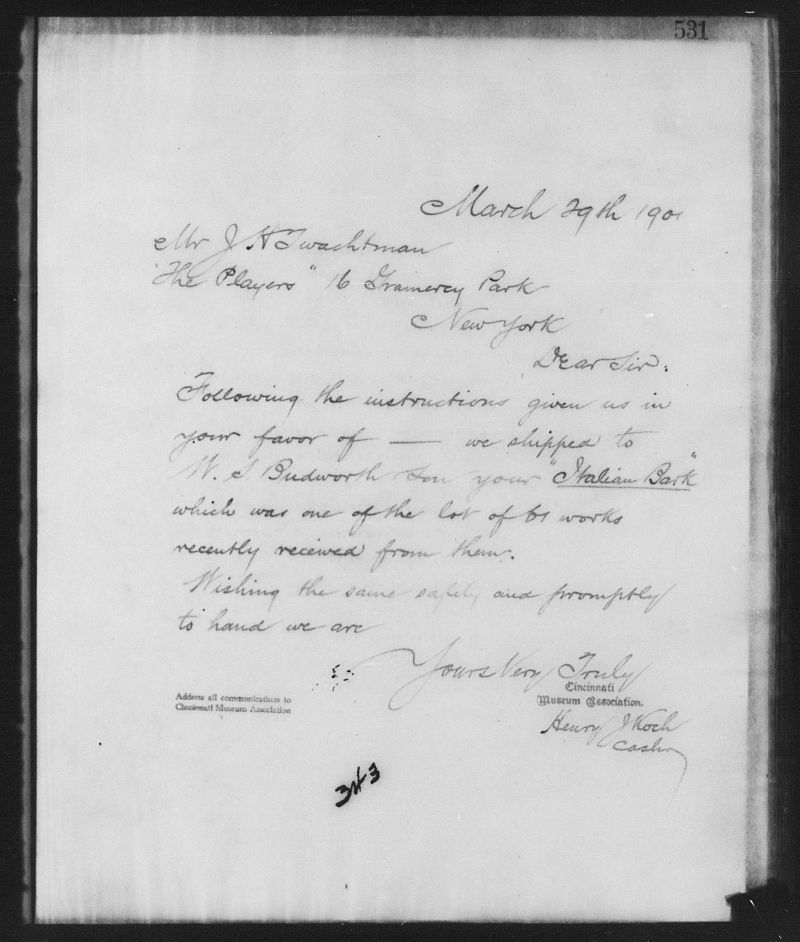 531
March 29th 1901
Mr J H Twachtman
"The Players" 16 Gramercy Park
New York
Dear Sir.
Following the instructions given us in
your favor of — we shipped to
W. S. Budworth Son your "Italian Bark"
which was one of the lot of 61 works
recently received from them.
Wishing the same safely and promptly
to hand we are
Yours Very Truly
Cincinnati
Museum Association.
Address all communications to
Cincinnati Museum Association
Henry J Koch
Cashr
343